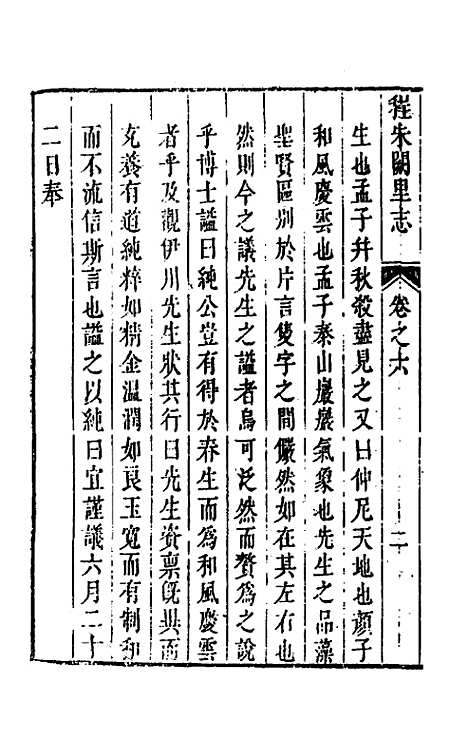 程朱闕里志 卷之六 二
生也孟子幷秋殺盡見之又曰仲尼天地也顏子
和風慶雲也孟子泰山巖巖氣象也先生之品藻
聖賢區别於片言隻字之間儼然如在其左右也
然則今之議先生之謚者烏可泛然而贅爲之說
乎博士謚曰純公豈有得於春生而爲和風慶雲
者乎及觀伊川先生狀其行曰先生資禀旣異而
充養有道純粹如精金温潤如良玉寬而有制和
而不流信斯言也謚之以純曰宜謹議六月二十
二日奉